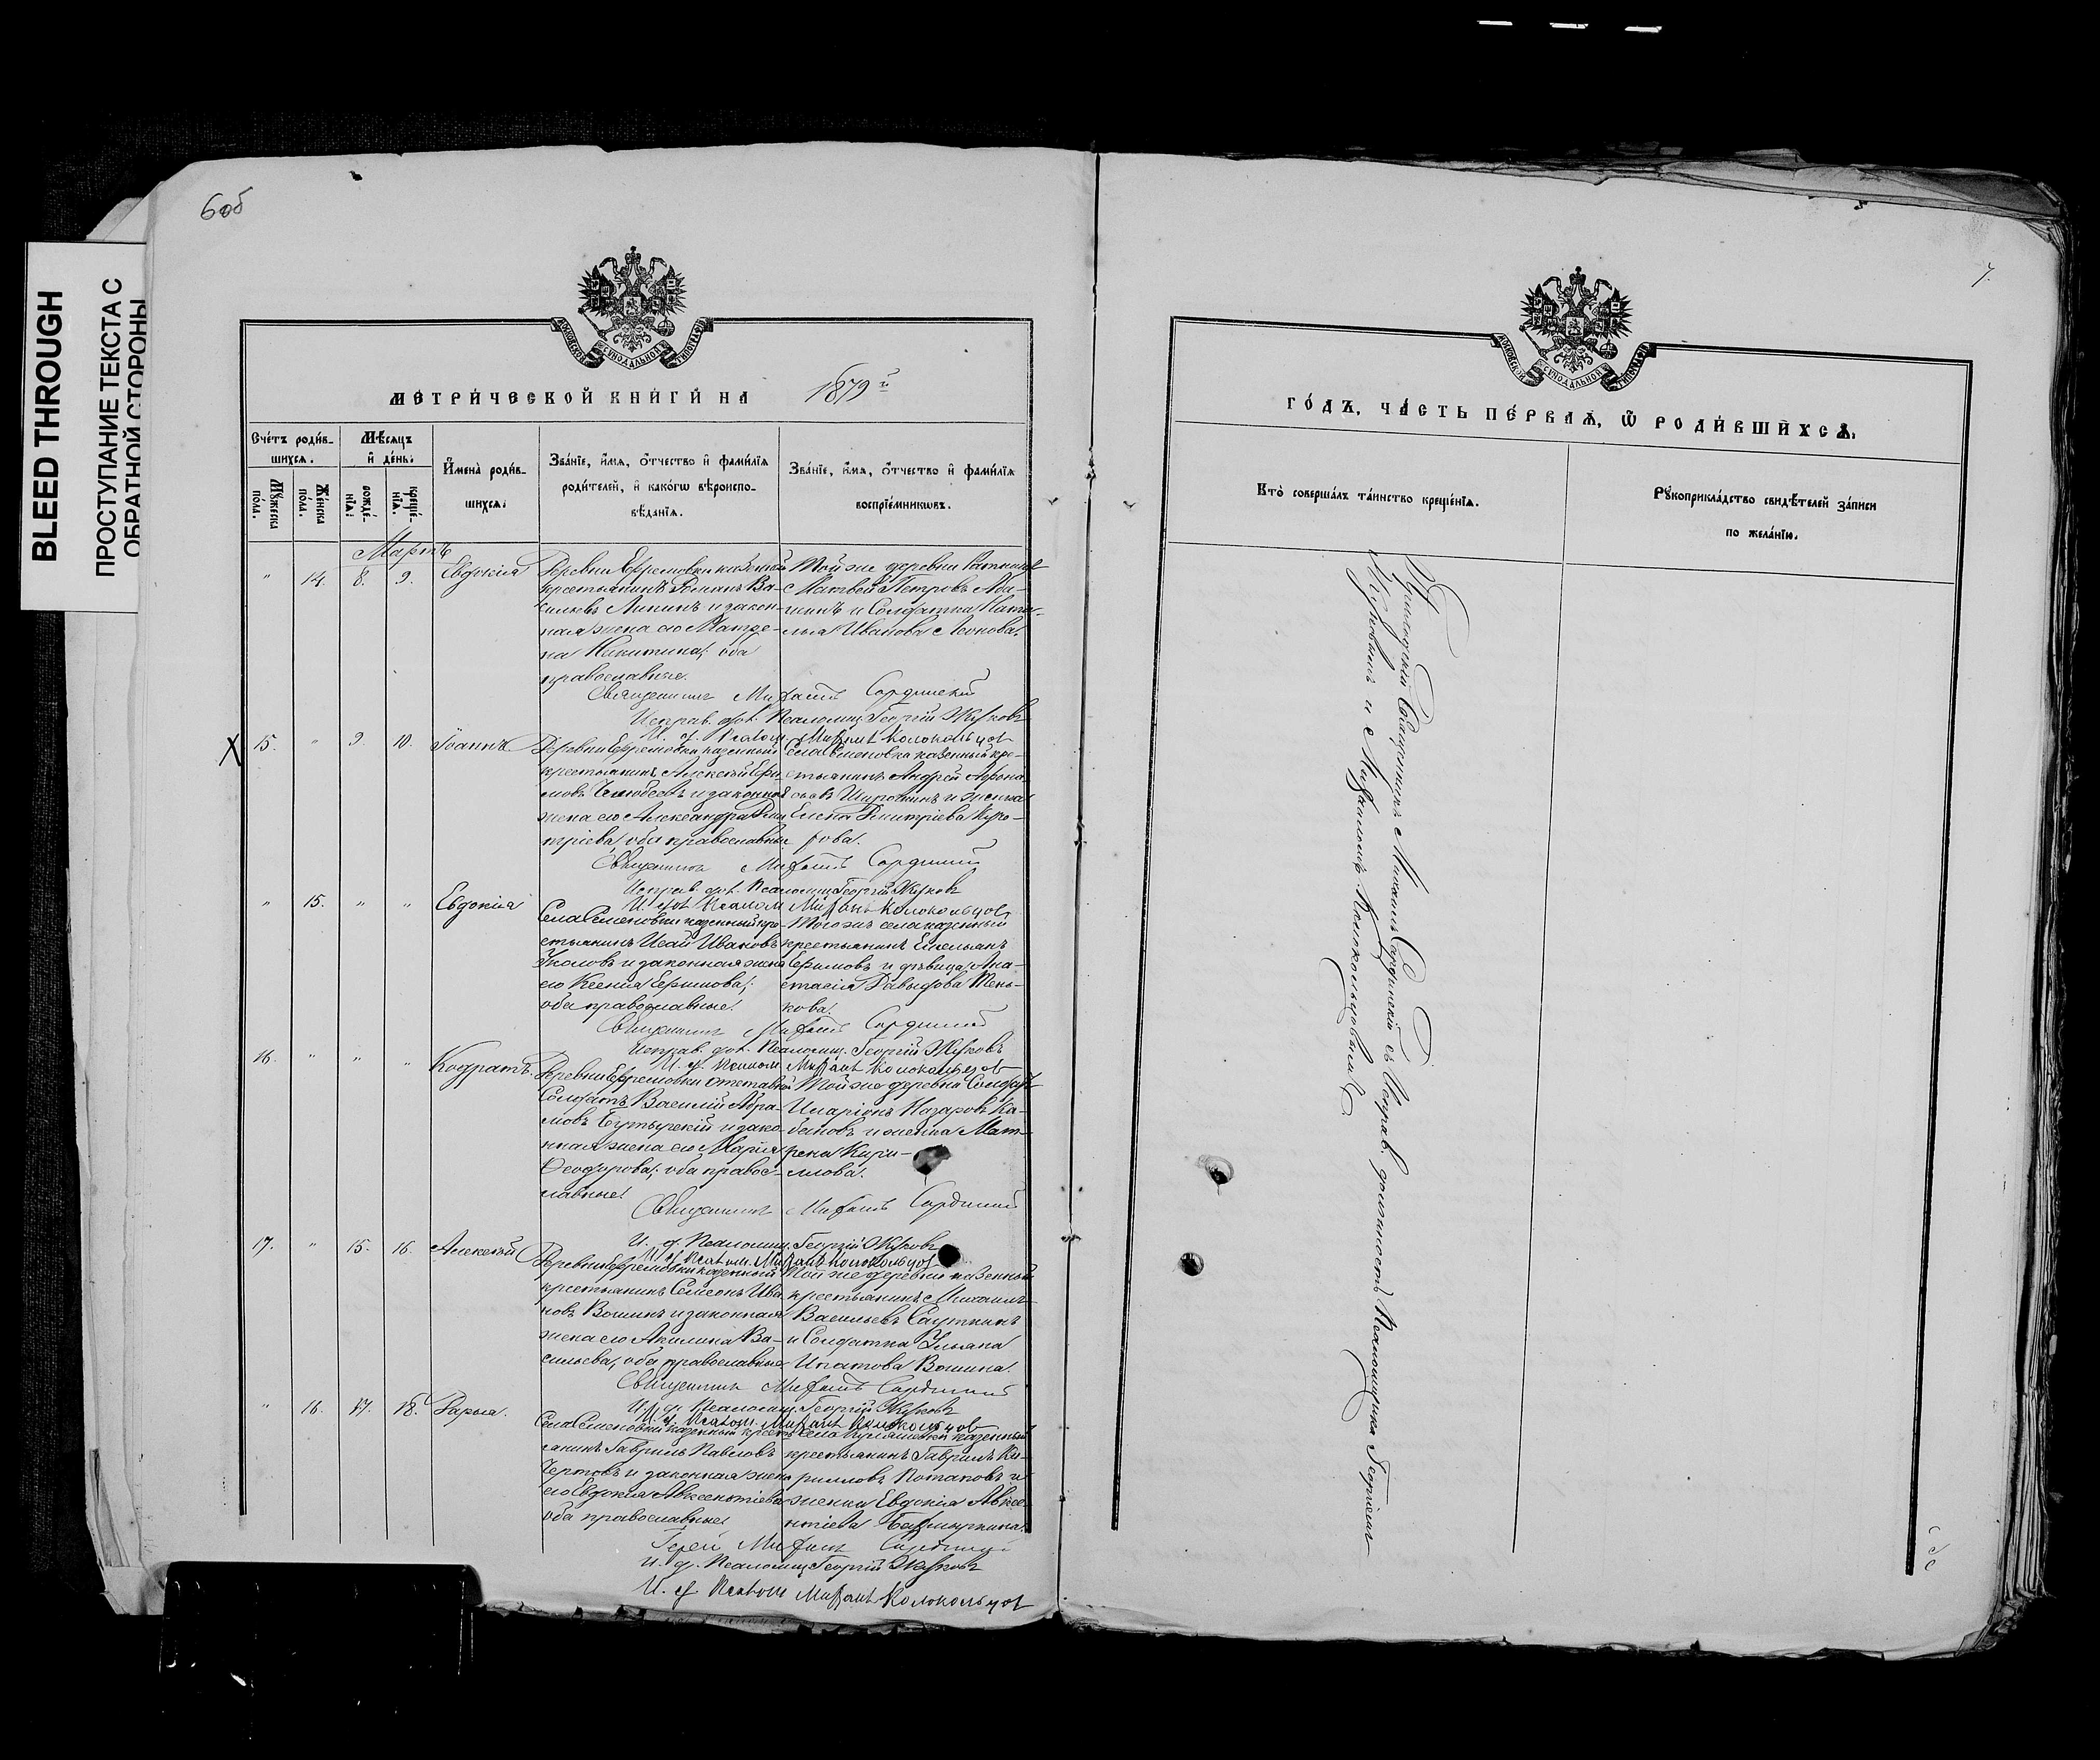 6 об
7.
BLEED THROUGH
ПРОСТУПАНИЕ ТЕКСТА С
ОБРАТНОЙ СТОРОНЫ
МОСКОВСКОЙ СѴНОДАЛЬНОЙ ТИПОГРАФІИ
МЕТРИ́ЧЕСКОЙ КНИ́ГИ НА 1879й
Сче́тъ роди́в-
шихсѧ.
Мѣ́сѧцъ
и҆ де́нь.
Мꙋ́жеска
по́ла.
Же́нска
по́ла.
рожде́-
нїѧ.
креще́-
нїѧ.
И҆мена̀ роди́в-
шихсѧ.
Зва́нїе, и҆́мѧ, ѻ҆́тчество и҆ фами́лїѧ
роди́телей, и҆ како́гѡ вѣроиспо-
вѣ́данїѧ.
Зва́нїе, и҆́мѧ, ѻ҆́тчество и҆ фами́лїѧ
воспрїе́мникѡвъ.
Мартъ
" 14. 8. 9. Евдокія
Деревни Ефремовки казенный
крестьянинъ Романъ Ва-
сильевъ Липинъ и закон-
ная жена его Матре-
на Никитина; оба
православные.
Той же деревни
Матвей Петровъ
и Солдатка
Иванова Леонова.
Священникъ Михаилъ Сардинский
Исправ. дол. Псаломщ. Георгій Жуковъ
И. д. Псалом. Михаил Колокольцов
X 15. " 9. 10. Іоаннъ
Деревни Ефремовки казенный
крестьянинъ Алексей Ефи-
мовъ и законная
жена его Александра Дми-
тріева, оба православные
Села Семеновки казенный кре-
стьянинъ Андрей Афона-
сьевъ Широкинъ и женка
Елена Дмитріева
Священникъ Михаилъ Сардинский
Исправ. дол. Псаломщ. Георгій Жуковъ
И. дол. Псалом Михаил Колокольцов
" 15. " " Евдокія
Села Семеновки казенный кре-
стьянинъ Исай Ивановъ
и законная жена
его Ксения Ефимова;
оба православные.
Того же села казенный
крестьянинъ Емельянъ
Ефимовъ и девица Ана-
стасія Давыдова Тень-
кова.
Священникъ Михаилъ Сардинский
Исправ. дол. Псаломщ. Георгій Жуковъ
И. д. Псалом. Михаил Колокольцов
16. " " " Кодратъ.
Деревни Ефремовки отставной
Солдатъ Василій Абра-
мовъ Бутырскій и зако-
нная жена его Марія
Феодорова; оба правос-
лавные.
Той же деревни Солдатъ
Иларіонъ Назаровъ Ка-
бановъ и женка Мат-
рена Кири-
ллова.
Священникъ Михаилъ Сардинский
И. д. Псаломщ. Георгій Жуковъ
И. д. Псалом. Михаил Колокольцов
17. " 15. 16. Алексей
Деревни Ефремовки казенный
крестьянинъ Семеонъ Ива-
новъ Вошинъ и законная
жена его Акилина Ва-
сильева, оба православные
Той же деревни казенный
крестьянинъ Михаилъ
Васильевъ Сауткинъ
и Солдатка Ульяна
Ипатова Вошина.
Священникъ Михаилъ Сардинский
И. д. Псаломщ. Георгій Жуковъ
И. д. Псалом. Михаил Колокольцов
" 16. 17. 18. Дарья.
Села Семеновки казенный крест-
янинъ Гаврилъ Павловъ
Чертовъ и законная жена
его Евдокія Авксентіева
оба православные
Села казенный
крестьянинъ Гаврилъ Ки-
рилловъ Потаповъ и
женка Евдокія Авксе-
нтіева
Іерей Михаилъ Сардинский
И. д. Псаломщ. Георгій Жуковъ
И. д. Псалом Михаил Колокольцов
ГО́ДЪ, ЧА́СТЬ ПЕ́РВАѦ, Ѿ РОДИ́ВШИХСѦ.
Кто̀ соверша́лъ та́инство креще́нїѧ.
Рꙋкоприкла́дство свидѣ́телей за́писи
по жела́нїю.
Приходскій Священникъ Михаилъ Сардинскій съ Исправ. должность Псаломщика Георгіемъ
Жуковымъ и Михаиломъ Колокольцовымъ